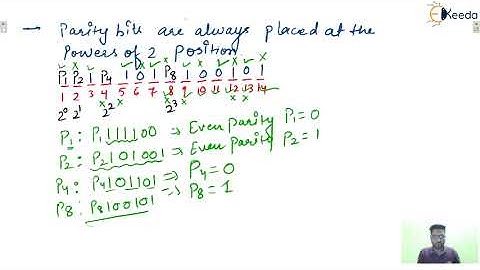 Keeda
→ Parity bits are always placed at the
Powers of 2 position
P1 P2 1 P4 1 0 1 P8 1 0 0 1 0 1
1 2 3 4 5 6 7 8 9 10 11 12 13 14
2⁰ 2¹ 2² 2³
P1: P1 111100 → Even Parity P1 = 0
P2: P2 101001 → Even Parity P2 = 1
P4: P4 101101 → P4 = 0
P8: P8 100101 → P8 = 1